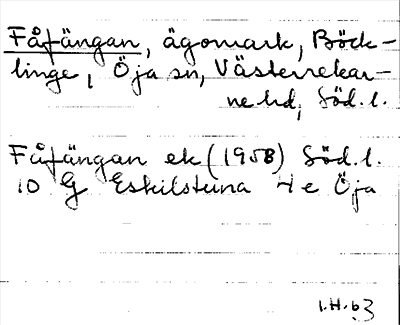 Fåfängan, ägomark, Böck-
linge, Öja sn, Västerrekar-
ne hd, Söd.l.
Fåfängan ek (1958) Söd.l.
10 G Eskilstuna 4 e Öja
I.H.63